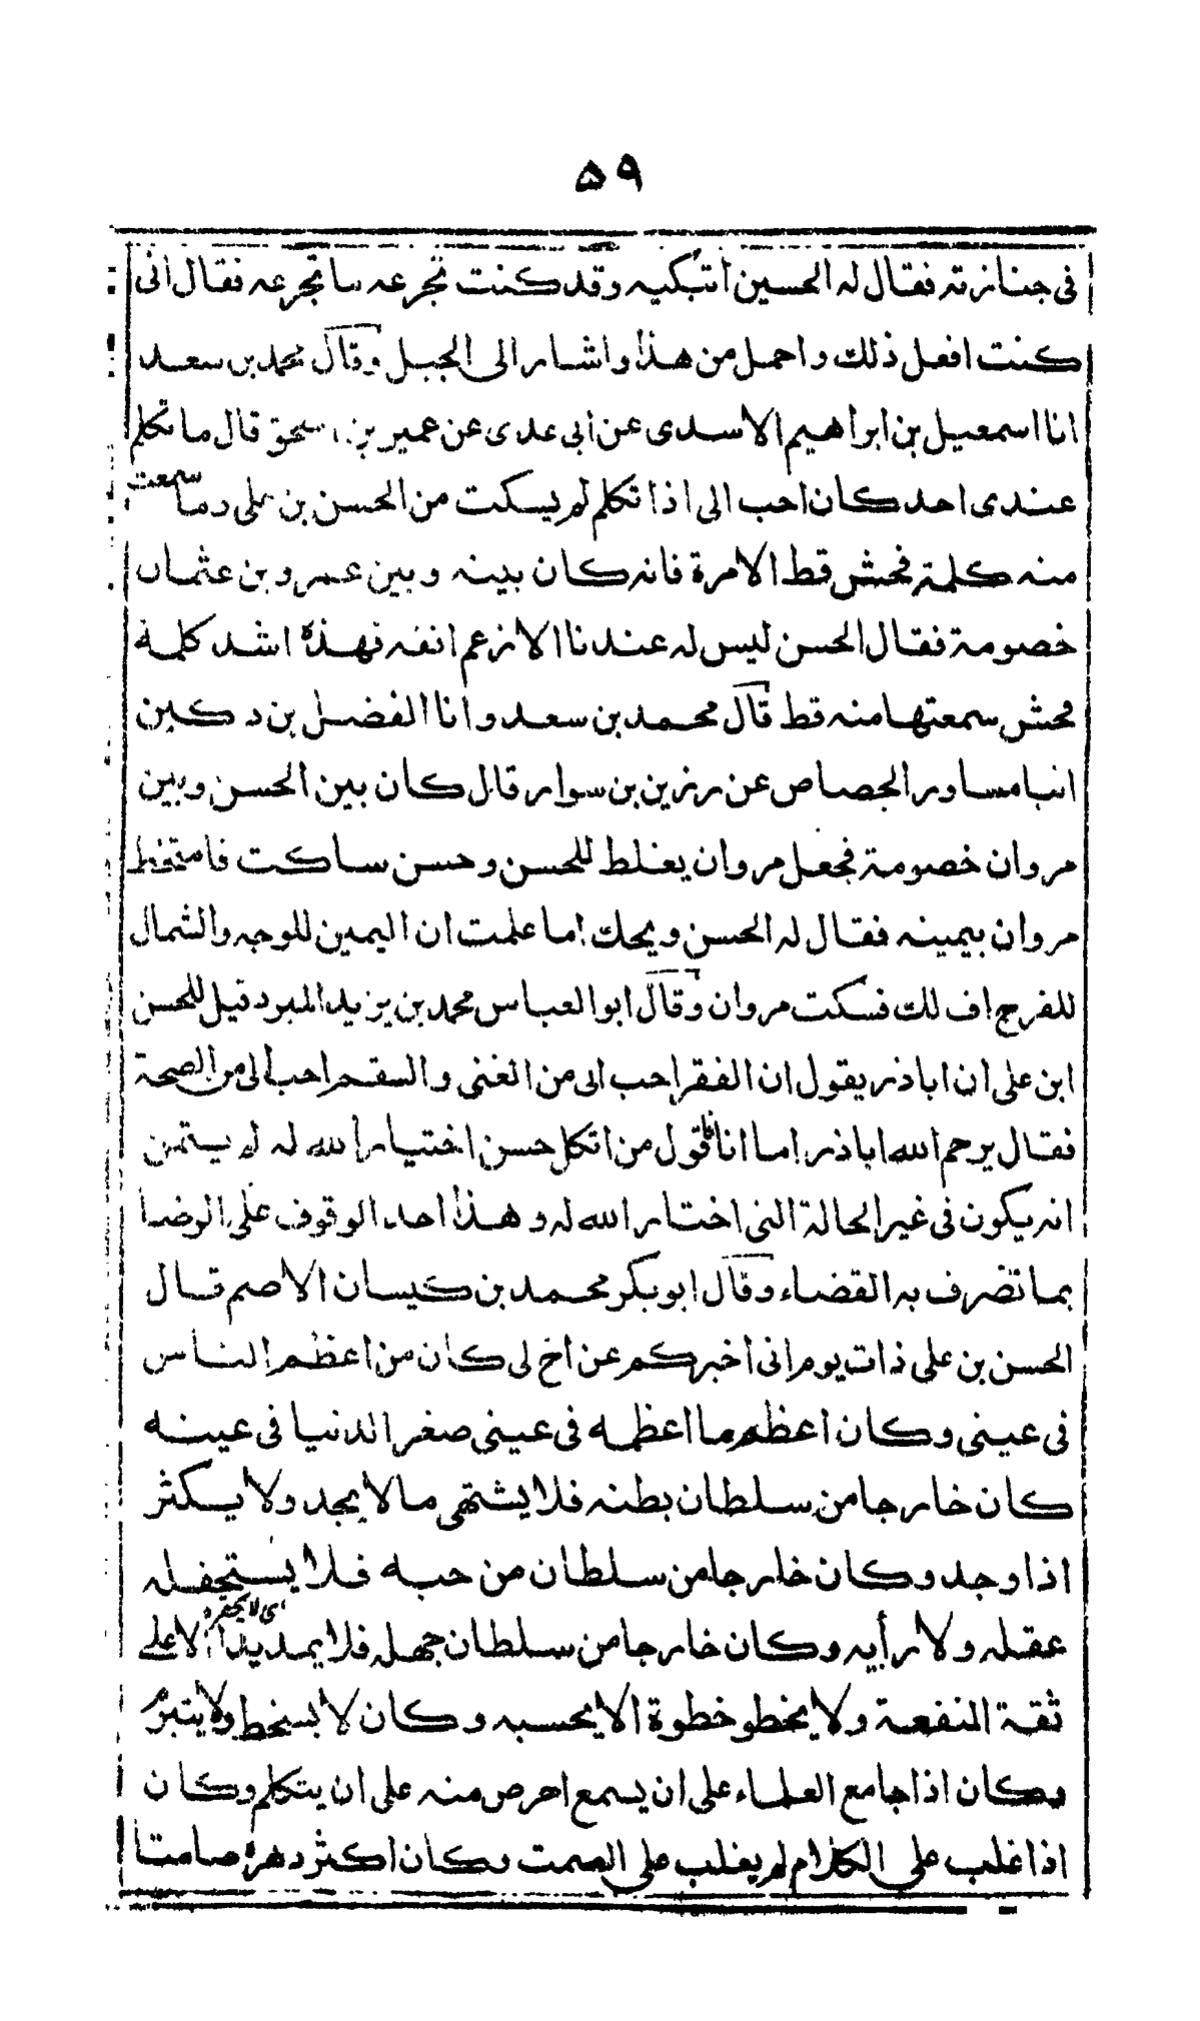 ۵۹
فى جنازته فقال له الحسين أتبكيه وقد كنت تجرعه ما تجرعه فقال انى
كنت افعل ذلك واحمل من هذا واشار الى الجبل وقال محمد بن سعد
انا اسمعيل بن ابراهيم الاسدى عن ابى عدى عن عمير بن اسحق قال ما تكلم
عندى احد كان احب الى اذا تكلم لم يسكت من الحسن بن على وما سمعت
منه كلمة فحش قط الا مرة فانه كان بينه وبين عمرو بن عثمان
خصومة فقال الحسن ليس له عندنا الا زعم انفه فهذه اشد كلمة
فحش سمعتها منه قط قال محمد بن سعد وانا الفضل بن دكين
انبا مساور الجصاص عن رزين بن سوار قال كان بين الحسن وبين
مروان خصومة فجعل مروان يغلط للحسن وحسن ساكت فامتخط
مروان بيمينه فقال له الحسن ويحك اما علمت ان اليمين للوجه والشمال
للفرج اف لك فسكت مروان وقال ابو العباس محمد بن يزيد المبرد قيل للحسن
ابن على ان اباذر يقول ان الفقر احب الى من الغنى والسقم احب الى من الصحة
فقال يرحم الله اباذر اما انا فاقول من اتكل حسن اختيار الله له لم يتمن
انه يكون فى غير الحالة التى اختار الله له وهذا احد الوقوف على الرضا
بما تضرف به القضاء وقال ابو بكر محمد بن كيسان الاصم قال
الحسن بن على ذات يوم انى اخبركم عن اخ لى كان من اعظم الناس
فى عينى وكان اعظم ما اعظمه فى عينى صغر الدنيا فى عينه
كان خارجا من سلطان بطنه فلا يشتهى ما لا يجد ولا يكثر
اذا وجد وكان خارجا من سلطان من حبه فلا يستخف له
اى لا يحقره
عقله ولا رأيه وكان خارجا من سلطان جهله فلا يمد يدا الا على
ثقة المنفعة ولا يخطو خطوة الا يحسبه وكان لا يسخط ولا يتبرم
وكان اذا جامع العلماء على ان يسمع احرص منه على ان يتكلم وكان
اذا غلب على الكلام لم يغلب على الصمت وكان اكثر دهره صامتا